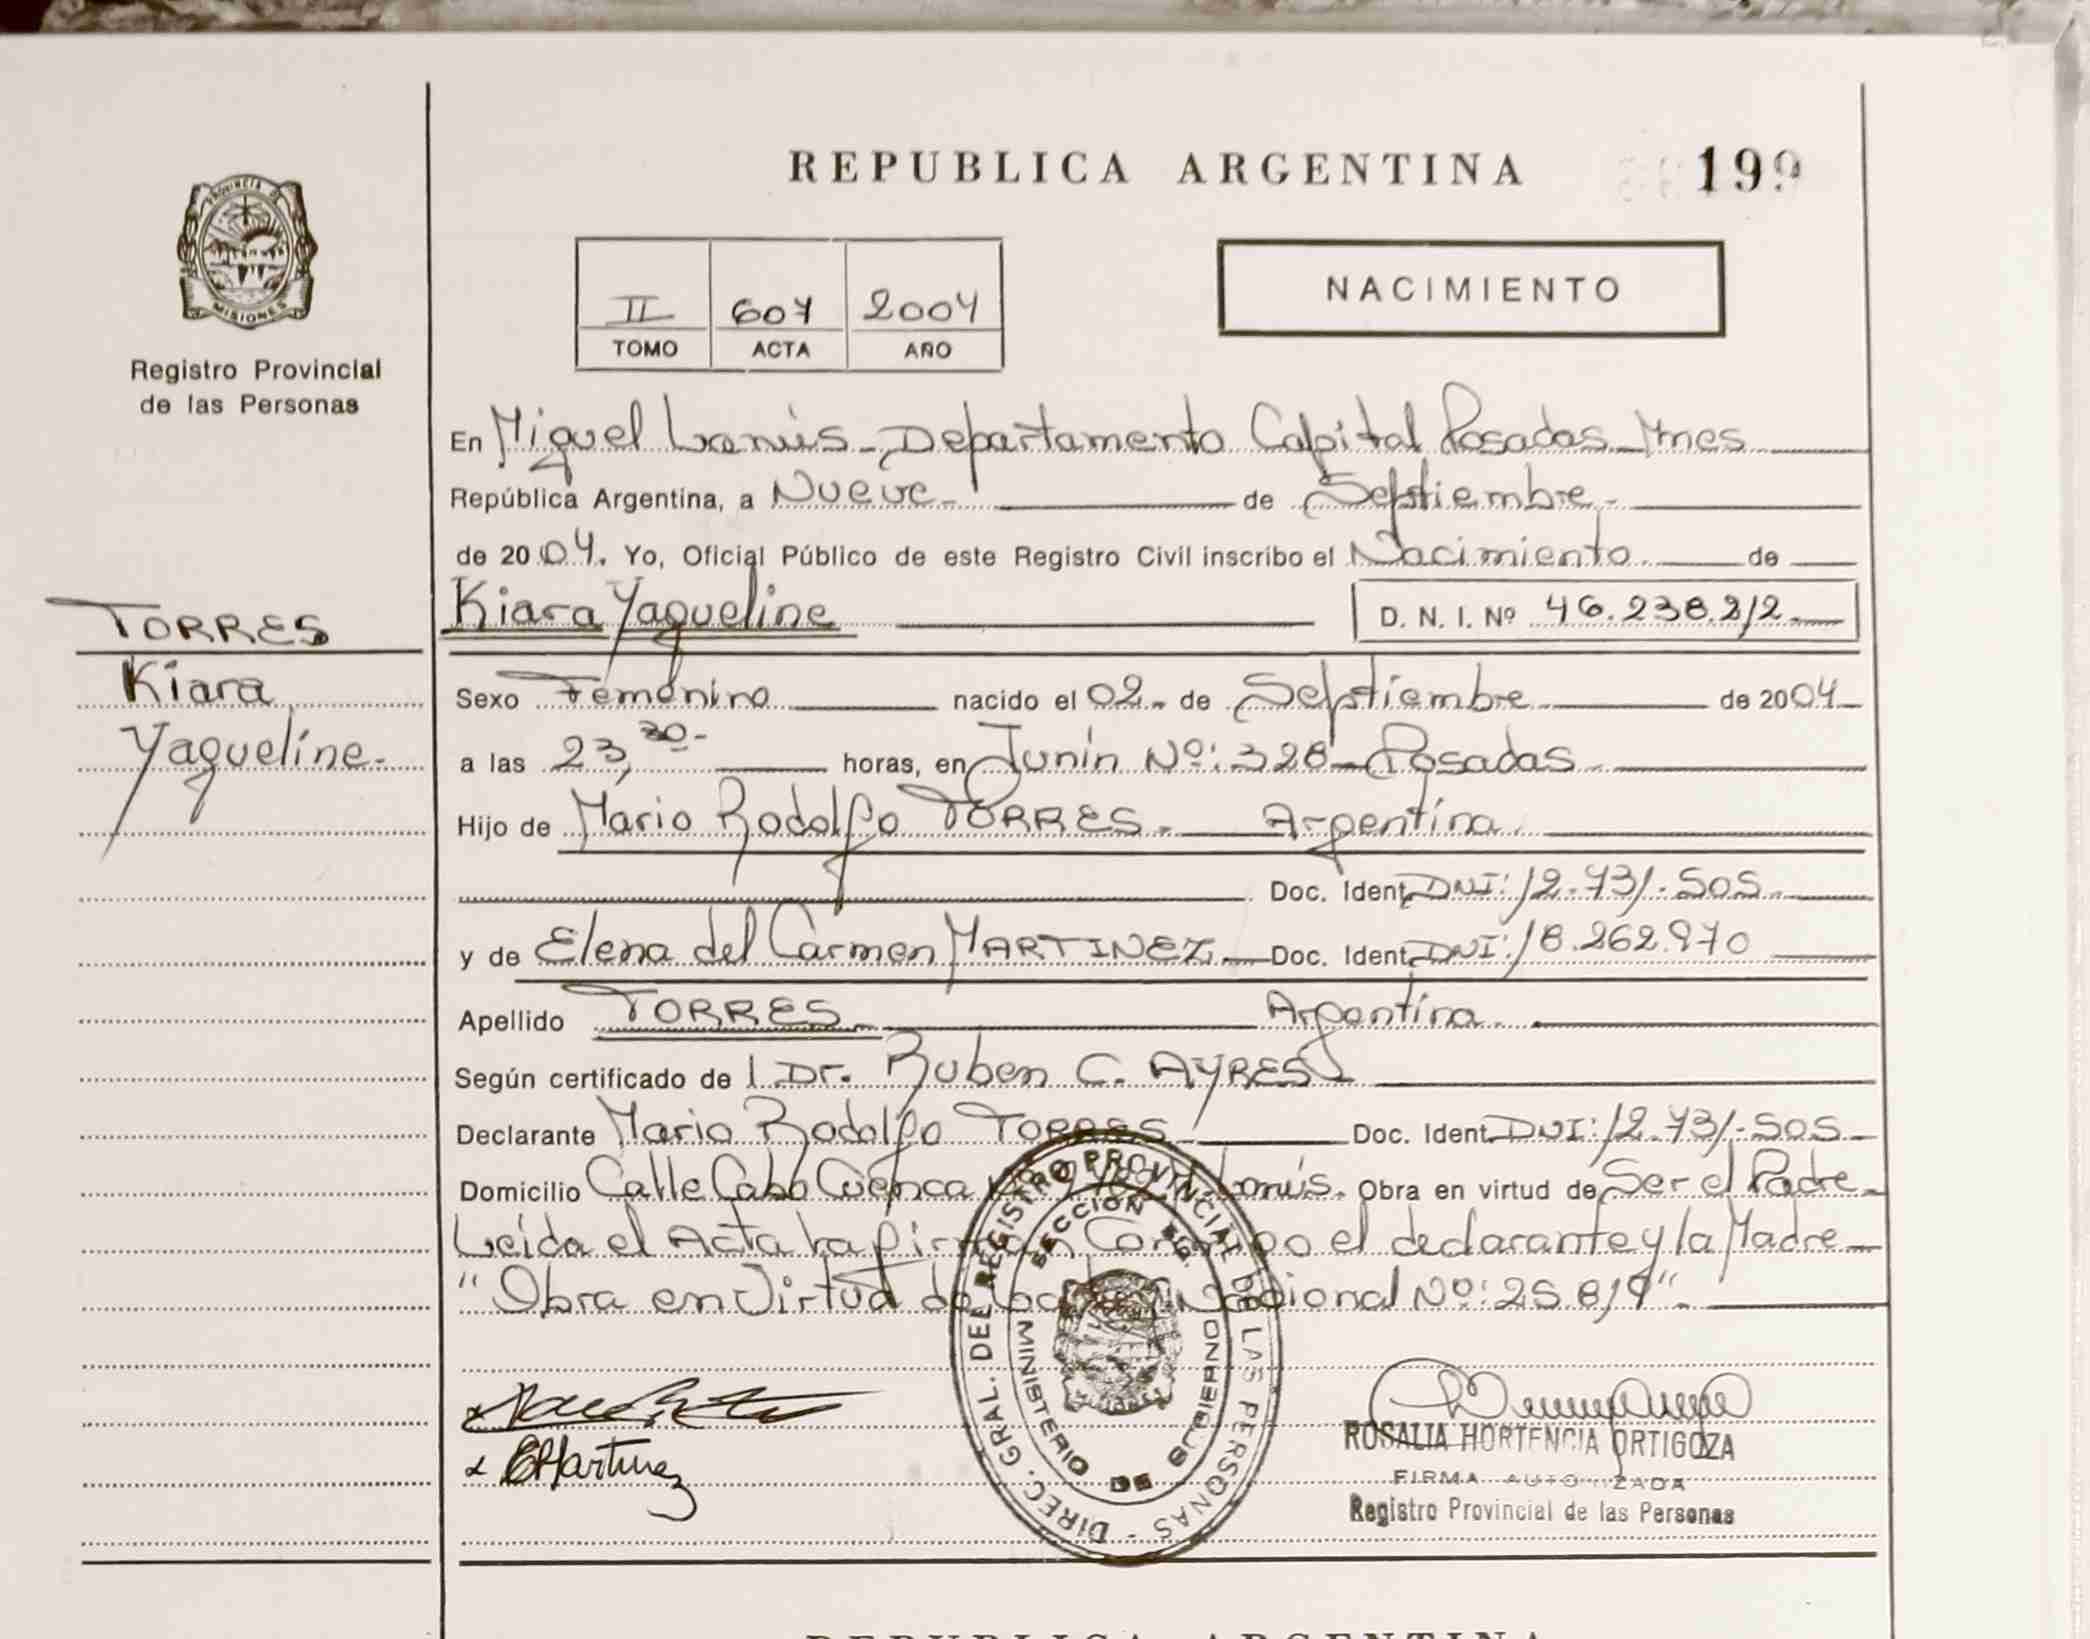 REPUBLICA ARGENTINA
199
PROVINCIA DE MISIONES
Registro Provincial
de las Personas
II 607 2004
TOMO ACTA AÑO
NACIMIENTO
En Miguel Lanús - Departamento Capital Posadas Mnes
República Argentina, a Nueve - de Septiembre -
de 2004. Yo, Oficial Público de este Registro Civil inscribo el Nacimiento de
TORRES
Kiara
Yaqueline -
Kiara Yaqueline D. N. I. Nº 46.238.212
Sexo Femenino nacido el 02 - de Septiembre de 2004
a las 23,30 - horas, en Junín Nº: 328 - Posadas
Hijo de Mario Rodolfo TORRES - Argentina
Doc. Ident. DNI: 12.731.505
y de Elena del Carmen MARTINEZ Doc. Ident. DNI: 18.262.970
Apellido TORRES Argentina
Según certificado de l Dr. Ruben C. AYRES
Declarante Mario Rodolfo TORRES Doc. Ident. DNI: 12.731.505
Domicilio Calle Cabo Cuenca Lanús. Obra en virtud de Ser el Padre
Leída el Acta la firman Conmigo el declarante y la Madre
"Obra en Virtud de la Ley Nacional Nº: 25.819"
DIREC. GRAL. DEL REGISTRO PROVINCIAL DE LAS PERSONAS -
SECCION
MINISTERIO DE GOBIERNO
EMartinez
ROSALIA HORTENCIA ORTIGOZA
FIRMA AUTORIZADA
Registro Provincial de las Personas
REPUBLICA ARGENTINA